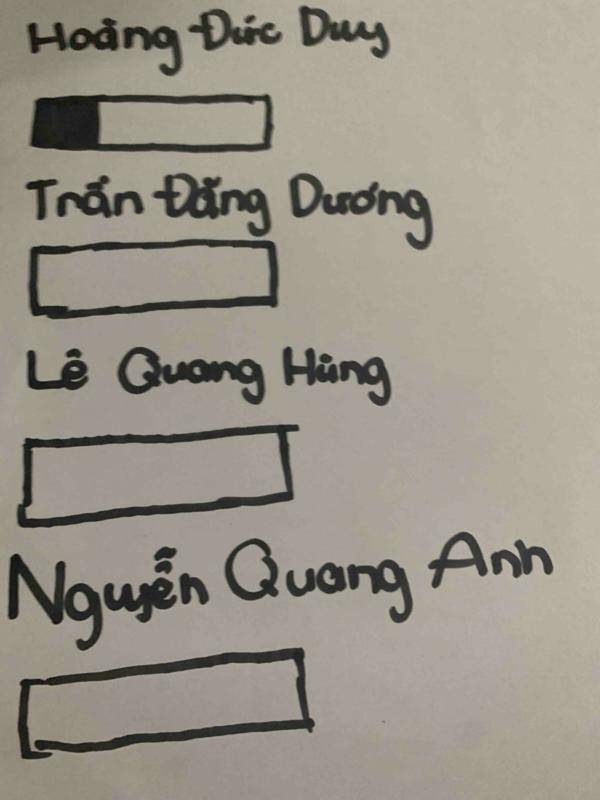 Hoàng Đức Duy
Trần Đăng Dương
Lê Quang Hùng
Nguyễn Quang Anh